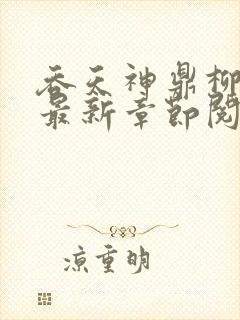 吞天神鼎柳
最新章节阅
凉重明